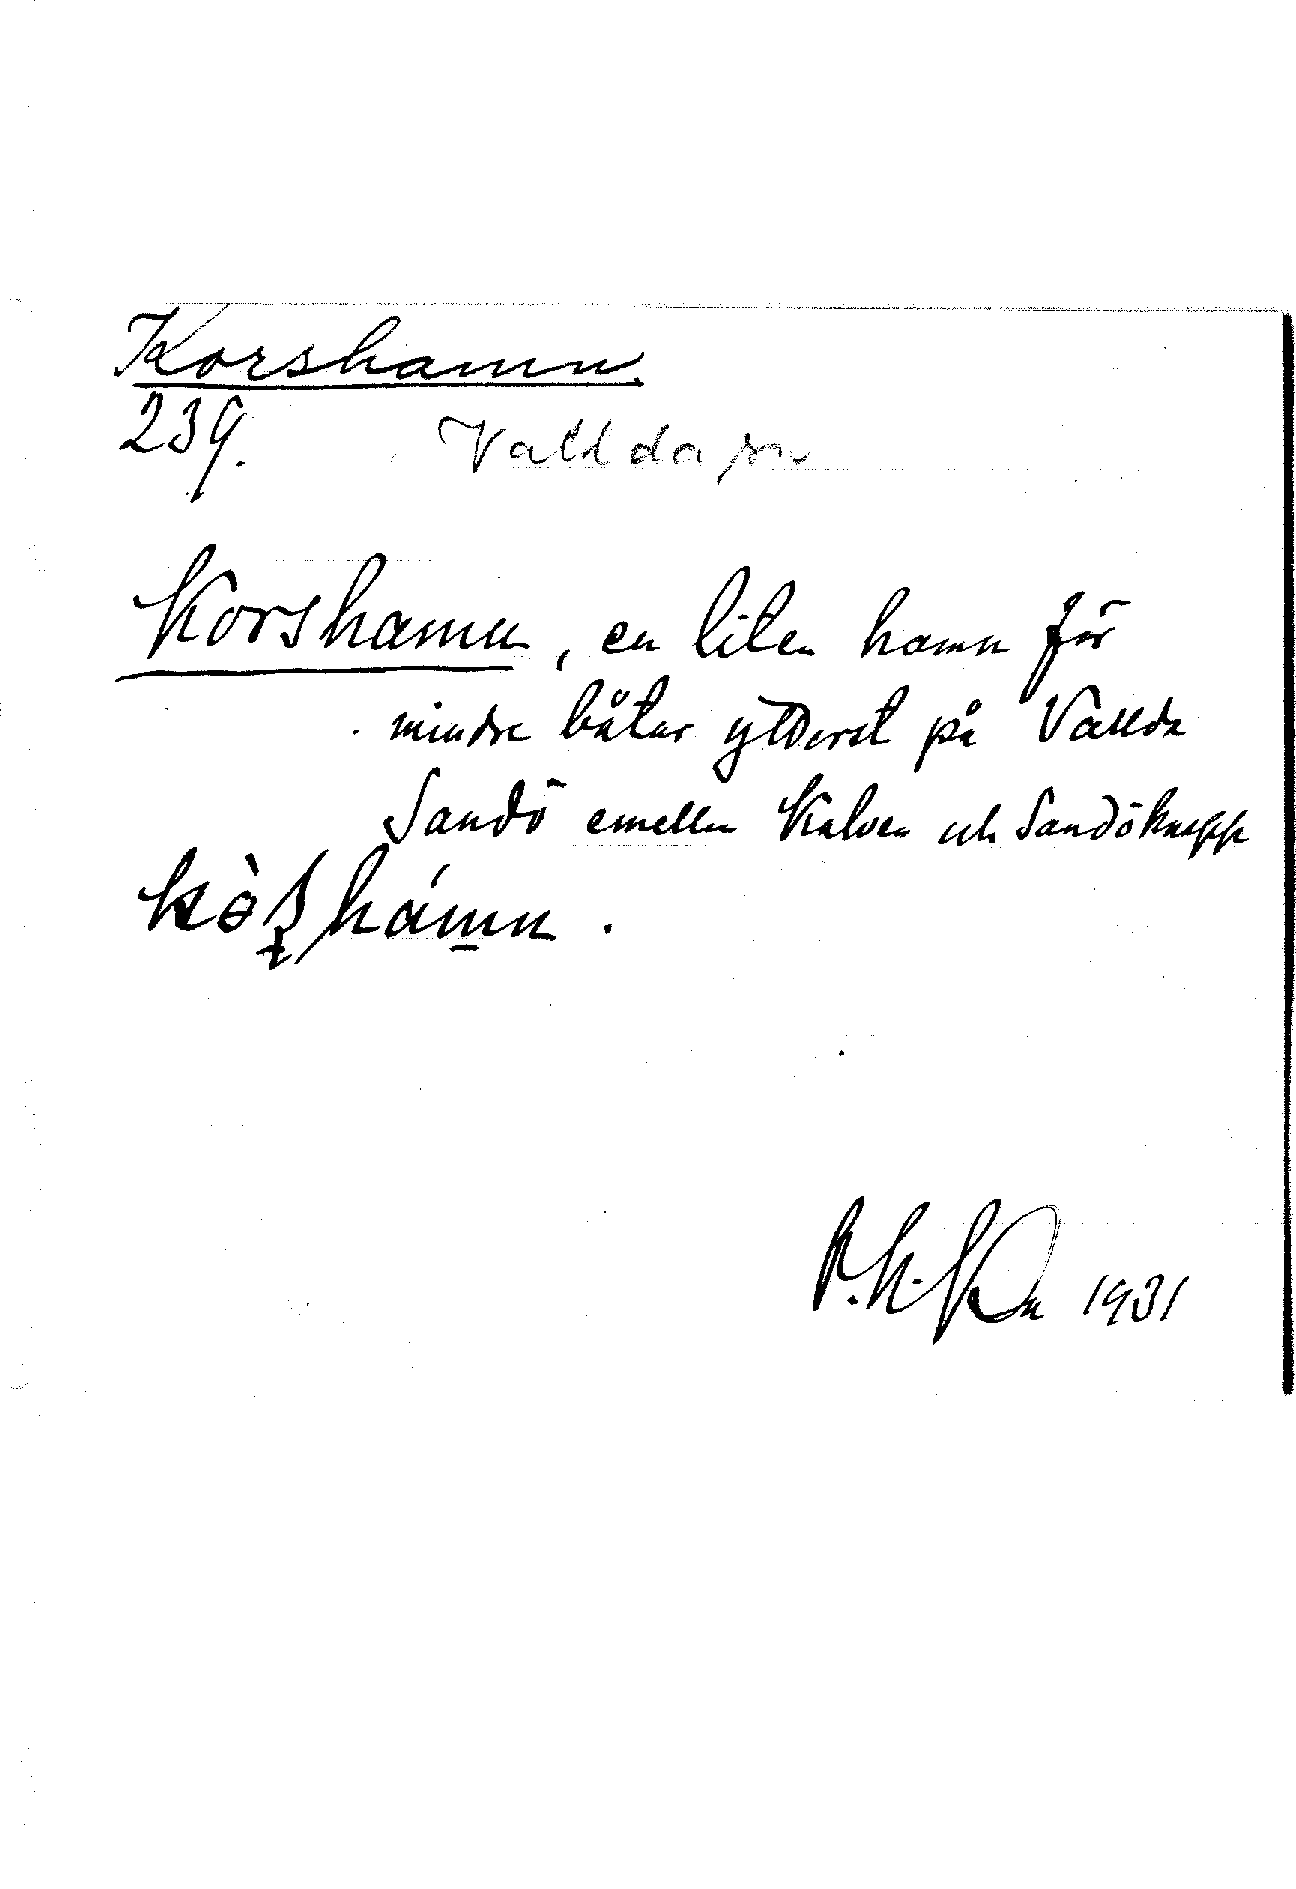 Korshamn
239.
Vallda sn
Korshamn, en liten hamn för
mindre båtar ytterst på Vallda
Sandö emellan Kalven och Sandöknapp
1931